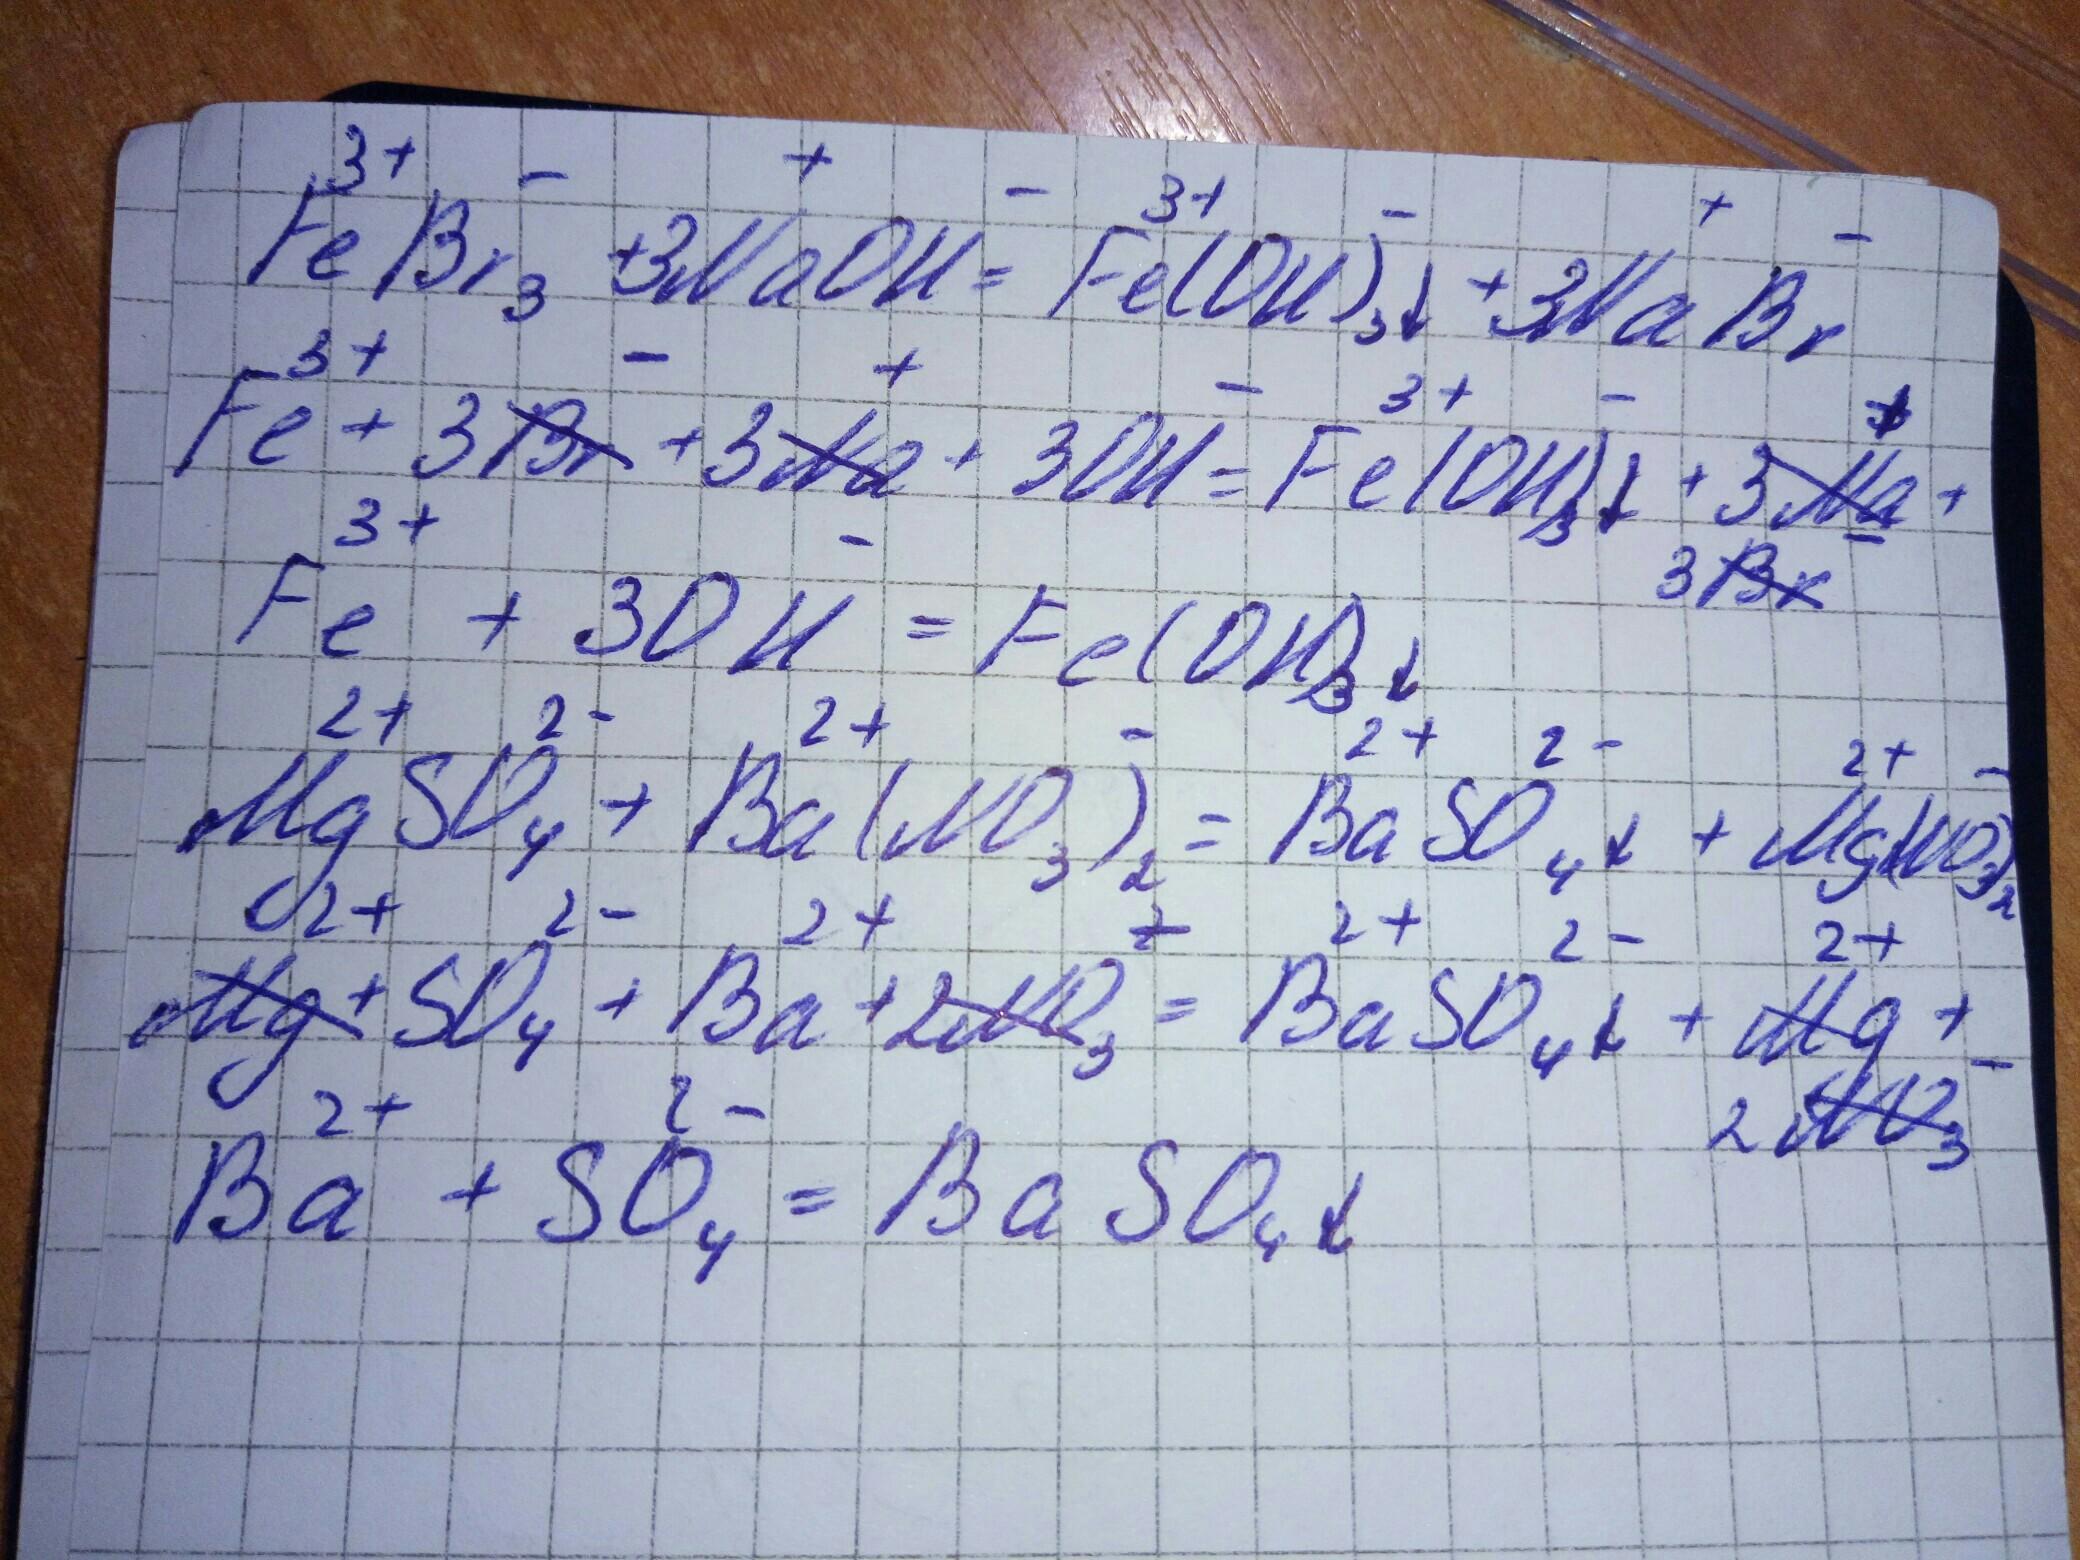 Fe³⁺Br₃⁻ + 3Na⁺OH⁻ = Fe³⁺(OH)₃⁻↓ + 3Na⁺Br⁻
Fe³⁺ + 3Br⁻ + 3Na⁺ + 3OH⁻ = Fe³⁺(OH)₃⁻↓ + 3Na⁺ +
3Br⁻
Fe³⁺ + 3OH⁻ = Fe(OH)₃↓
Mg²⁺SO₄²⁻ + Ba²⁺(NO₃)₂⁻ = Ba²⁺SO₄²⁻↓ + Mg²⁺(NO₃)₂⁻
Mg²⁺ + SO₄²⁻ + Ba²⁺ + 2NO₃⁻ = Ba²⁺SO₄²⁻↓ + Mg²⁺ +
2NO₃⁻
Ba²⁺ + SO₄²⁻ = BaSO₄↓